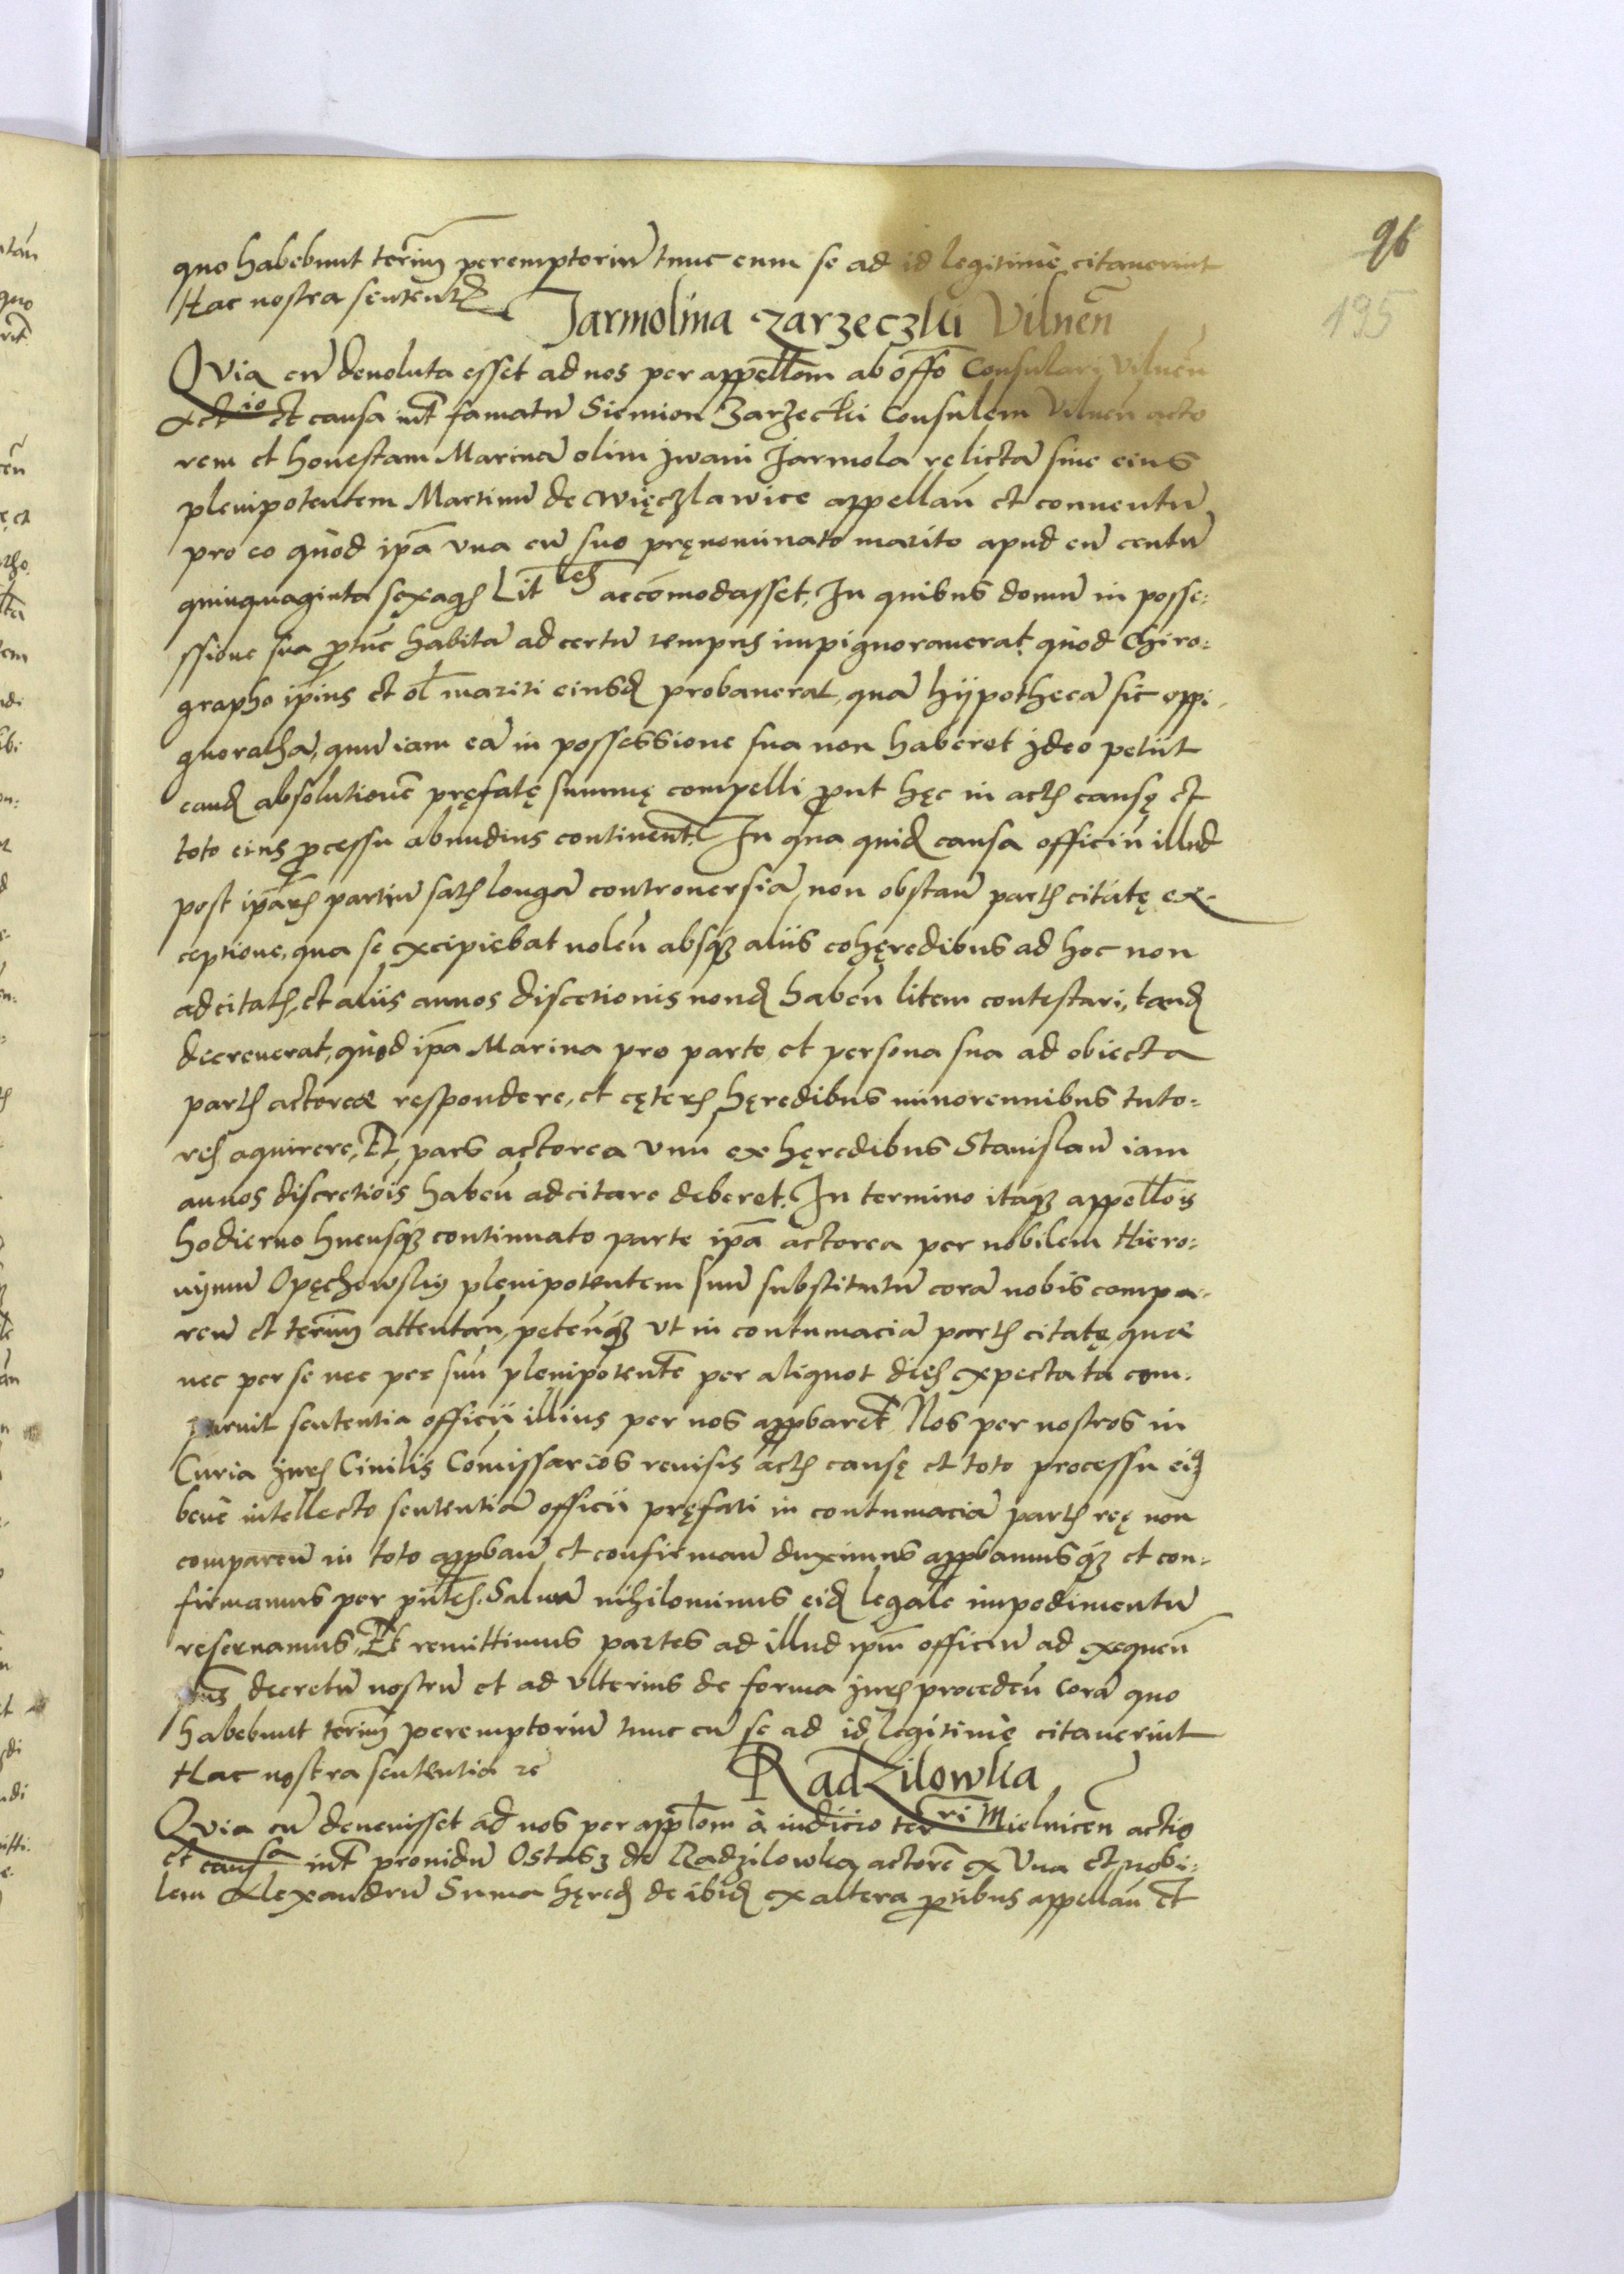 96
195
quo habebunt terīm peremptoriū tunc cum se ad id legitimè citauerint
Hac nostra sentent
Jarmolina Zarzeczki Vilneñ
Qvia cū deuoluta esset ad nos per appellõm ab offō Consulari Vilneñ
Actio et causa int famatū Siemion Zarzecki Consulem Vilneñ acto
rem et honestam Marinā olim jwani Jarmola relictā siue eius
plenipotentem Martinū de Więczlawice appellañ et conuentū
pro eo quòd ipā vna cū suo pręnominato marito apud eū centū
quinquaginta sexages Lit les accõmodasset, In quibus domū in posse:
ssione sua ptūc habitā ad certū tempus impignorauerat, quòd Chiro:
grapho ipius et ol mariti eiusd probauerat, quā hijpothecā sic oppi
gnoratā, quū iam eā in possessione sua non haberet jdeo petiit
eand absolutionē pręfatę summę compelli put hęc in actis causę et
toto eius pcessu abundius continent. In qua quid causa officiū illud
post iparū partiū satis longā controuersiā, non obstañ partis citatę ex-
ceptione, qua se excipiebat noleñ absq3 aliis cohęredibus ad hoc non
adcitatis, et aliis annos discetionis nond habeñ litem contestari, tand
decreuerat, quòd ipā Marina pro parte et persona sua ad obiecta
partis actoreæ respondere, et cęteris hęredibus minorennibus tuto=
res aquirere, Et pars actorea vnū ex hęredibus Stanislaū iam
annos discretiōis habeñ adcitare deberet. In termino itaq3 appellōis
hodierno hucusq3 continuato parte ipā actorea per nobilem Hiero:
nijmū Opęchowski plenipotentem suū substitutū corā nobis compa-
reñ et terīm attentañ, petenq3 vt in contumaciā partis citatę, quæ
nec per se nec per suū plenipotentē per aliquot dies expectata com-
paruit sententia officii illius per nos appbaret. Nos per nostros in
Curia juris Ciuilis Com̄issarios reuisis actis causę et toto processu ei9
benè intellecto sententiā officii pręfati in contumaciā partis reę non
compareñ in toto appbañ et confirmañ duximus appbamusq3 et con-
firmamus per pñtes. Saluā nihilominus eid legale impedimentū
reseruamus, Et remittimus partes ad illud ipm officiū ad exequeñ
hūs decretū nostrū et ad vlterius de forma juris procedeñ Corā quo
habebunt terīm peremptoriū tunc cū se ad id legitimè citauerint
Hac nostra sententia rē
Radzilowka
Qvia cū deuenisset ad nos per appłom à iudicio terri Mielnicen actio
et causa int prouidū Ostasz de Radzilowka actorē ex Vna et nobi:
lem Alexandrū Suma hęred de ibid ex altera ptibus appellañ et